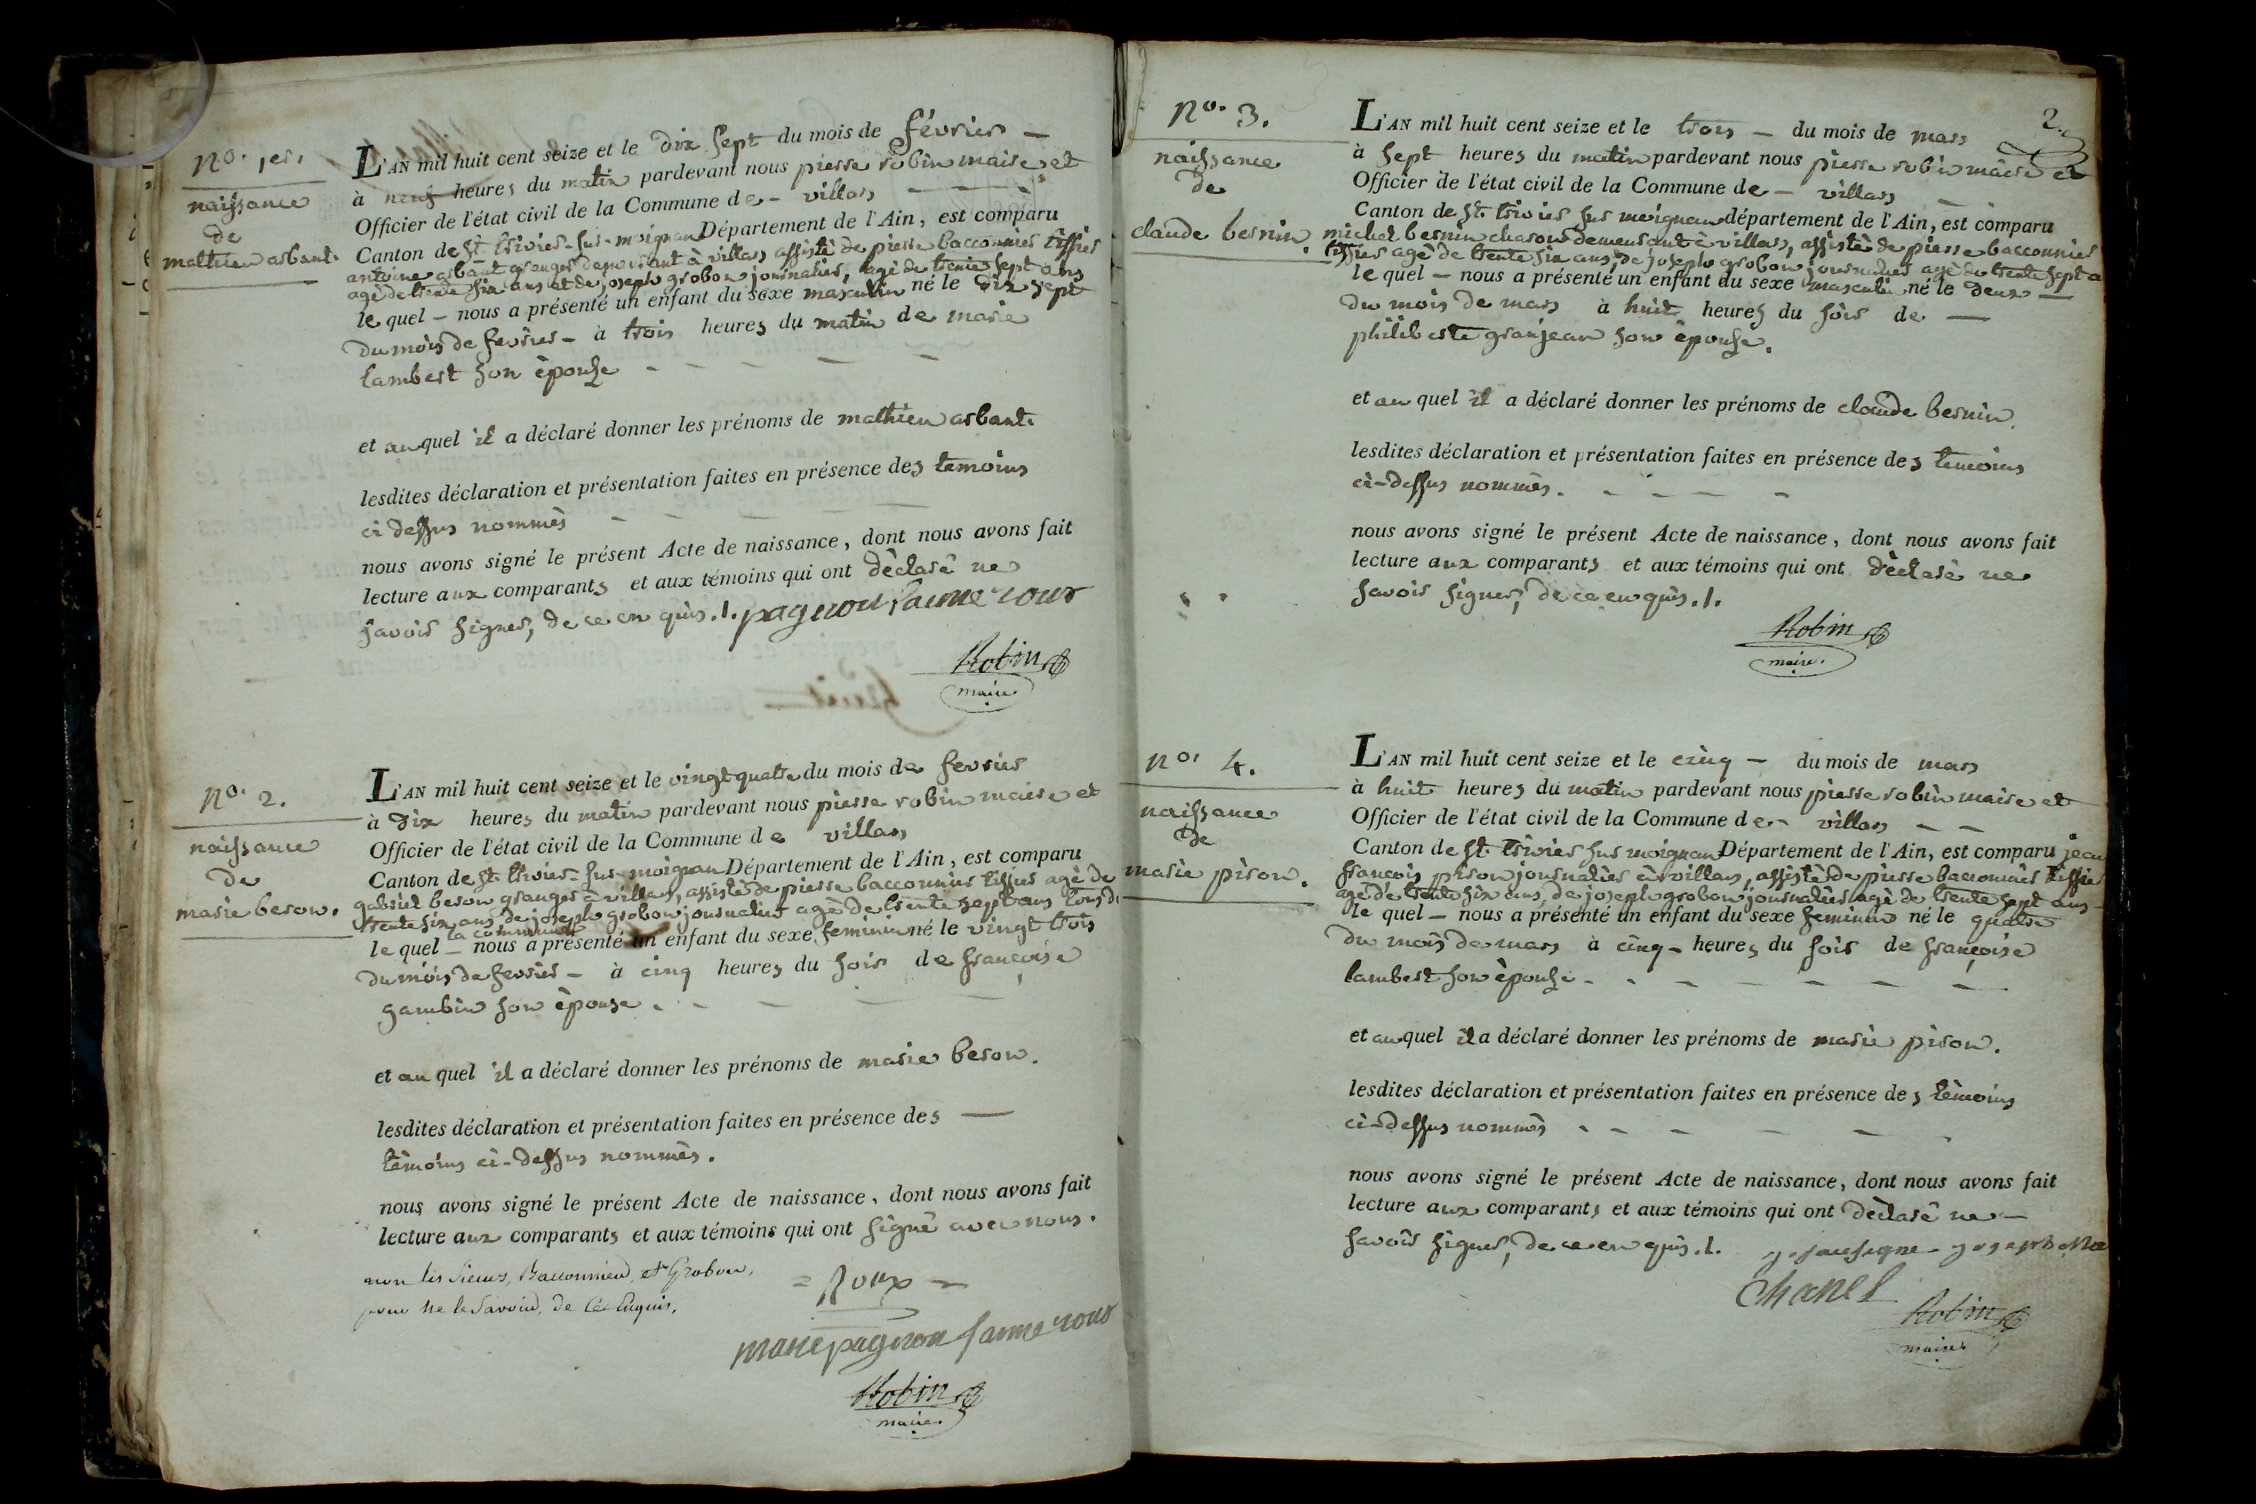 No. 1er.
naissance
de
mathieu arbant.
L'AN mil huit cent seize et le dix sept du mois de février —
à neuf heures du matin pardevant nous pierre robin maire et
Officier de l'état civil de la Commune de — villars
Canton de St. trivier-sur-moignan Département de l'Ain, est comparu
antoine arbant granger demeurant à villars assisté de pierre bacconnier tissier
agé de trente six ans et de joseph grobon journalier, agé de trente sept ans
le quel — nous a présenté un enfant du sexe masculin né le dix sept
du mois de fevrier — à trois heures du matin de marie
lambert son épouse
et au quel il a déclaré donner les prénoms de mathieu arbant.
lesdites déclaration et présentation faites en présence des temoins
ci dessus nommés
nous avons signé le présent Acte de naissance, dont nous avons fait
lecture aux comparants et aux témoins qui ont déclaré ne
savoir signer, de ce enquis ./. pagnon famme roux
Robin
maire.
No. 2.
naissance
de
marie beron.
L'AN mil huit cent seize et le vingt quatre du mois de fevrier
à dix heures du matin pardevant nous pierre robin maire et
Officier de l'état civil de la Commune de villars
Canton de St. trivier-sur-moignan Département de l'Ain, est comparu
gabriel beron granger à villars, assisté de pierre bacconnier tissier agé de
trente six ans, de joseph grobon journalier agé de trente sept ans tous de
la commune
le quel — nous a présenté un enfant du sexe feminin né le vingt trois
du mois de fevrier — à cinq heures du soir de françoise
gambin son épouse.
et au quel il a déclaré donner les prénoms de marie beron.
lesdites déclaration et présentation faites en présence des —
témoins ci-dessus nommés.
nous avons signé le présent Acte de naissance, dont nous avons fait
lecture aux comparants et aux témoins qui ont signé avec nous.
non les sieurs, Bacconnier, et Grobon,
pour ne le savoir, de ce enquis.
= Roux =
marie pagnon famme roux
Robin
maire.
2.
No. 3.
naissance
de
claude bernin.
L'AN mil huit cent seize et le trois — du mois de mars
à sept heures du matin pardevant nous pierre robin maire et
Officier de l'état civil de la Commune de — villars
Canton de St. trivier sur moignan département de l'Ain, est comparu
michel bernin charon demeurant à villars, assisté de pierre bacconnier
tissier agé de trente six ans, de joseph grobon journalier agé de trente sept a
le quel — nous a présenté un enfant du sexe masculin né le deux —
du mois de mars à huit heures du soir de —
philiberte granjean son épouse.
et au quel il a déclaré donner les prénoms de claude bernin.
lesdites déclaration et présentation faites en présence des temoins
ci-dessus nommés.
nous avons signé le présent Acte de naissance, dont nous avons fait
lecture aux comparants et aux témoins qui ont déclaré ne
savoir signer, de ce enquis ./.
Robin
maire.
No. 4.
naissance
de
marie piron.
L'AN mil huit cent seize et le cinq — du mois de mars
à huit heures du matin pardevant nous pierre robin maire et
Officier de l'état civil de la Commune de — villars
Canton de St. trivier sur moignan Département de l'Ain, est comparu jean
francois piron journalier à villars, assisté de pierre bacconnier tissier
agé de trente six ans, de joseph grobon journalier agé de trente sept ans
le quel — nous a présenté un enfant du sexe feminin né le quatre
du mois de mars à cinq — heures du soir de françoise
lambert son épouse
et au quel il a déclaré donner les prénoms de marie piron.
lesdites déclaration et présentation faites en présence des témoins
ci-dessus nommés
nous avons signé le présent Acte de naissance, dont nous avons fait
lecture aux comparants et aux témoins qui ont déclaré ne —
savoir signer, de ce enquis ./.
chanel
Robin
maire